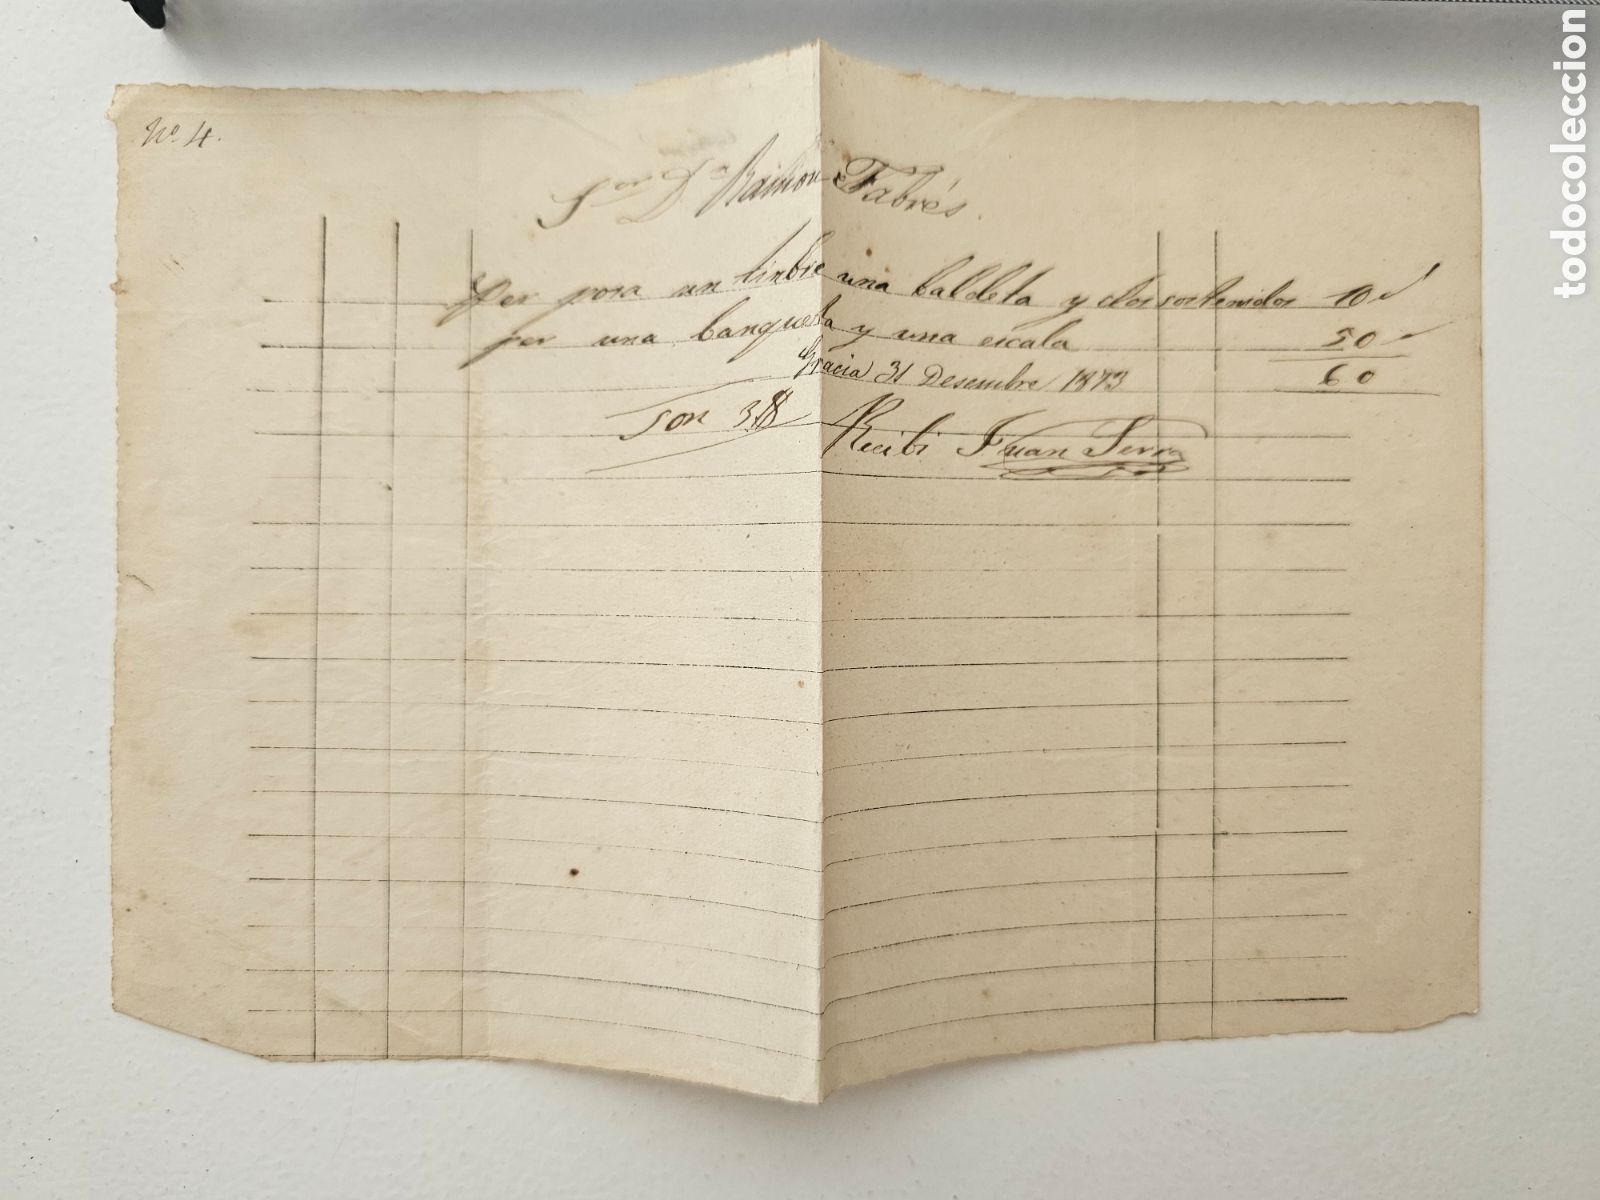 Nº 4.
Sor Dn Ramon Fabrés
Per posa un timbre una baldeta y dos sostenidos 10
per una banqueta y una escala 50
Gracia 31 Desembre 1873 60
Son 3
Recibi Juan Serra
todocoleccion